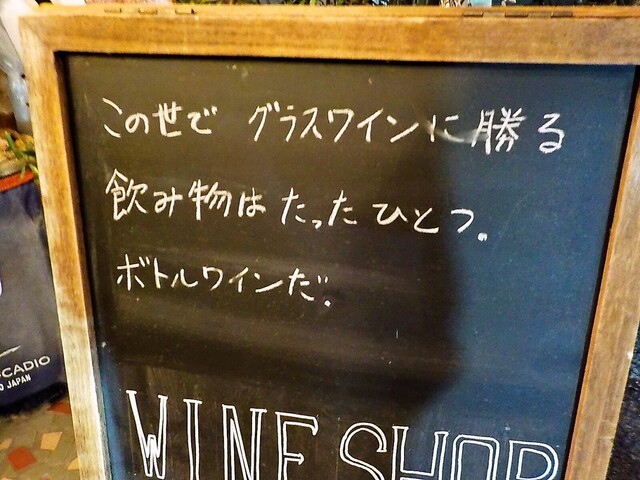 この世で グラスワインに勝る
飲み物は たった ひとつ.
ボトルワインだ.
WINE SHOP
CADIO
JAPAN